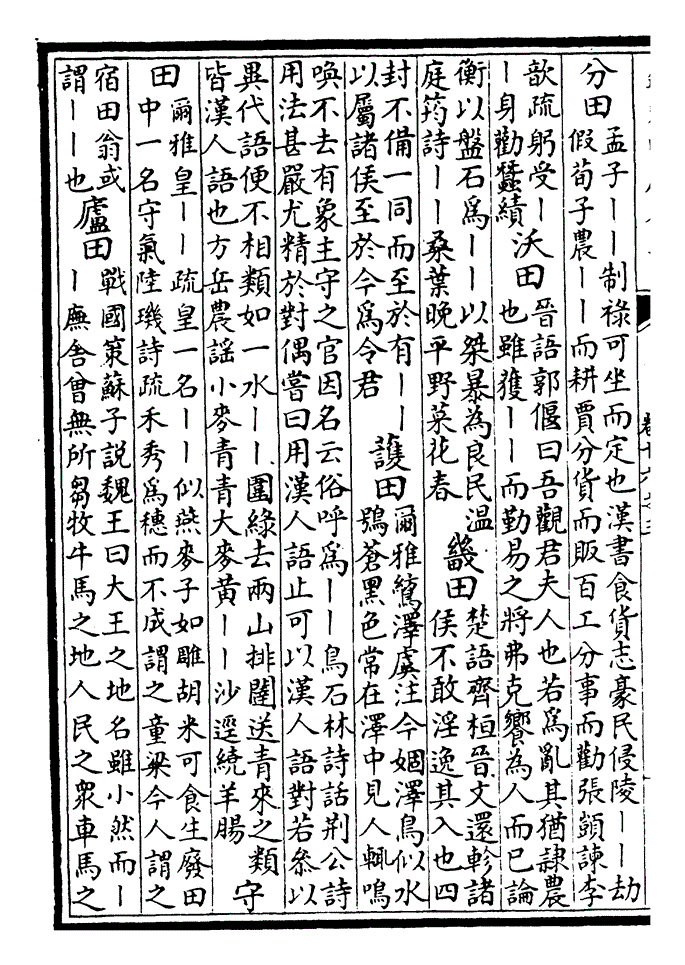 分田
孟子——制祿可坐而定也漢書食貨志豪民侵陵——劫
假荀子農——而耕賈分貨而販百工分事而勸張顗諫李
歆疏躬受—
—身勸蠶績
沃田
晉語郭偃曰吾觀君夫人也若爲亂其猶隷農
也雖獲——而勤易之將弗克饗為人而已論
衡以盤石爲——以桀暴為良民溫
庭筠詩——桑葉晚平野菜花春
畿田
楚語齊桓晉文還軫諸
侯不敢淫逸其入也四
封不備一同而至於有——
以屬諸侯至於今爲令君
護田
爾雅鶭澤虞注今婟澤鳥似水
鴞蒼黑色常在澤中見人輒鳴
喚不去有象主守之官因名云俗呼爲——鳥石林詩話荆公詩
用法甚嚴尤精於對偶嘗曰用漢人語止可以漢人語對若叅以
異代語便不相類如一水——圍綠去兩山排闥送青來之類
皆漢人語也方岳農謡小麥青青大麥黃——沙逕繞羊腸
守
田
爾雅皇——疏皇一名——似燕麥子如雕胡米可食生廢田
中一名守氣陸璣詩疏禾秀爲穗而不成謂之童粱今人謂之
宿田翁或
謂——也
廬田
戰國策蘇子説魏王曰大王之地名雖小然而—
—廡舍曾無所芻牧牛馬之地人民之衆車馬之